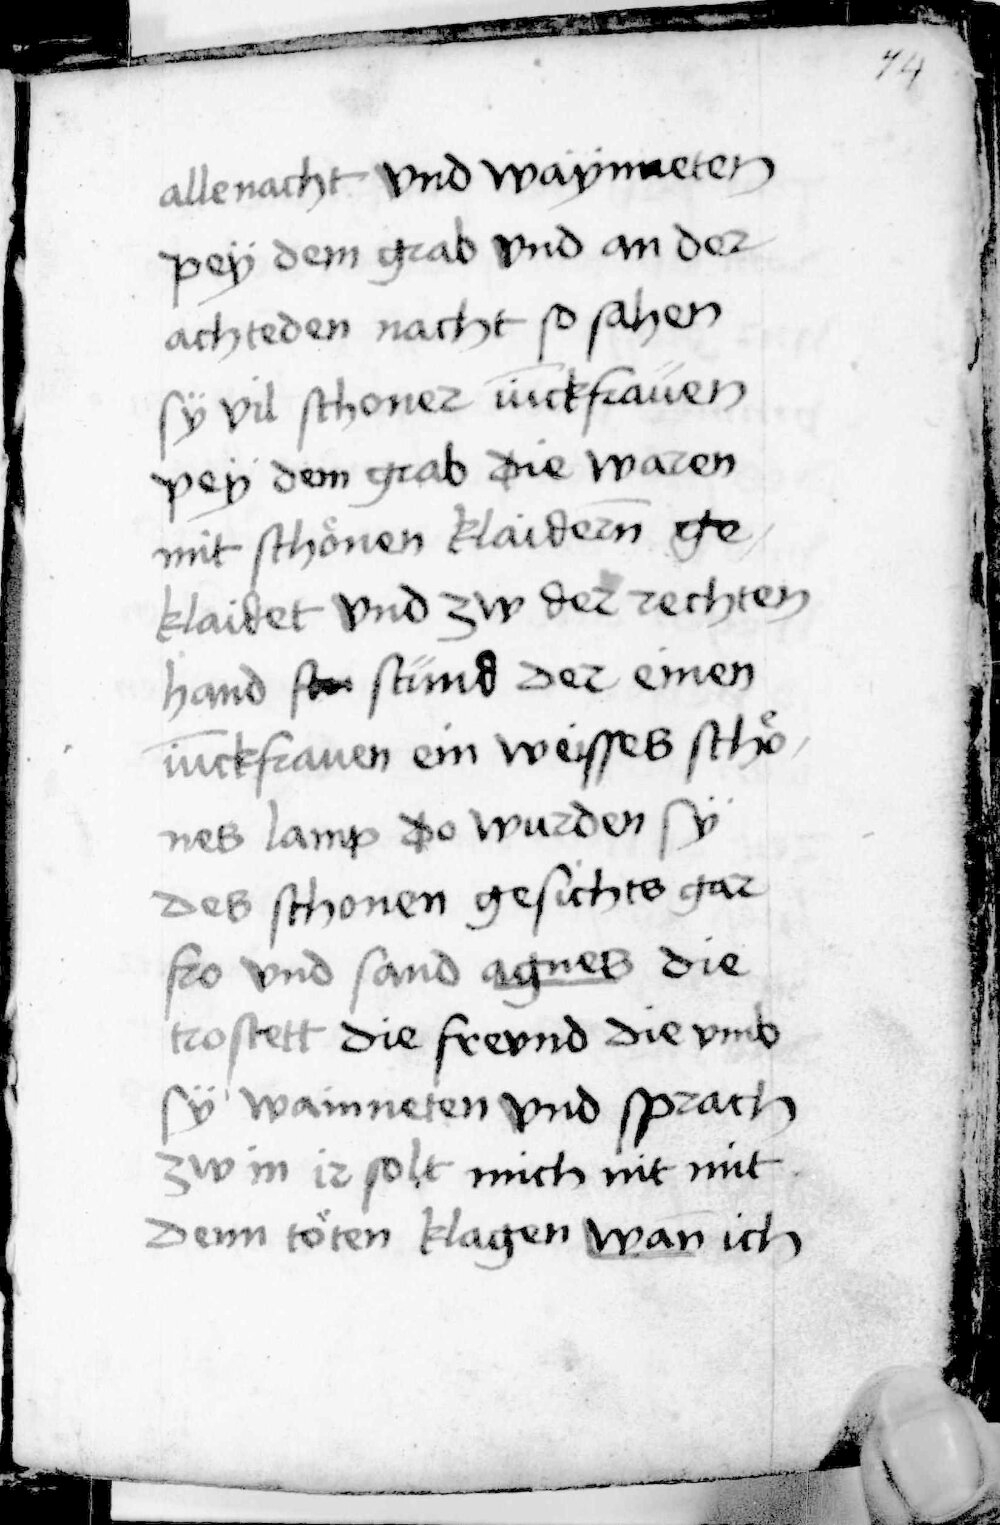 74
alle nacht vnd waÿnneten
peÿ dem grab vnd an der
achteden nacht so sahen
sÿ vil schoner iūckfraűen
peÿ dem grab die waren
mit schönen klaidern̄ ge
klaidet vnd zw der rechten
hand stünd der einen
iūckfrauen ein weisses schö
nes lamp do wurden sÿ
des schonen gesichts gar
fro vnd sand agnes die
trostett die frevnd die vmb
sÿ wainneten vnd sprach
zw in ir solt mich nit mit
denn töten klagen wan̄ ich